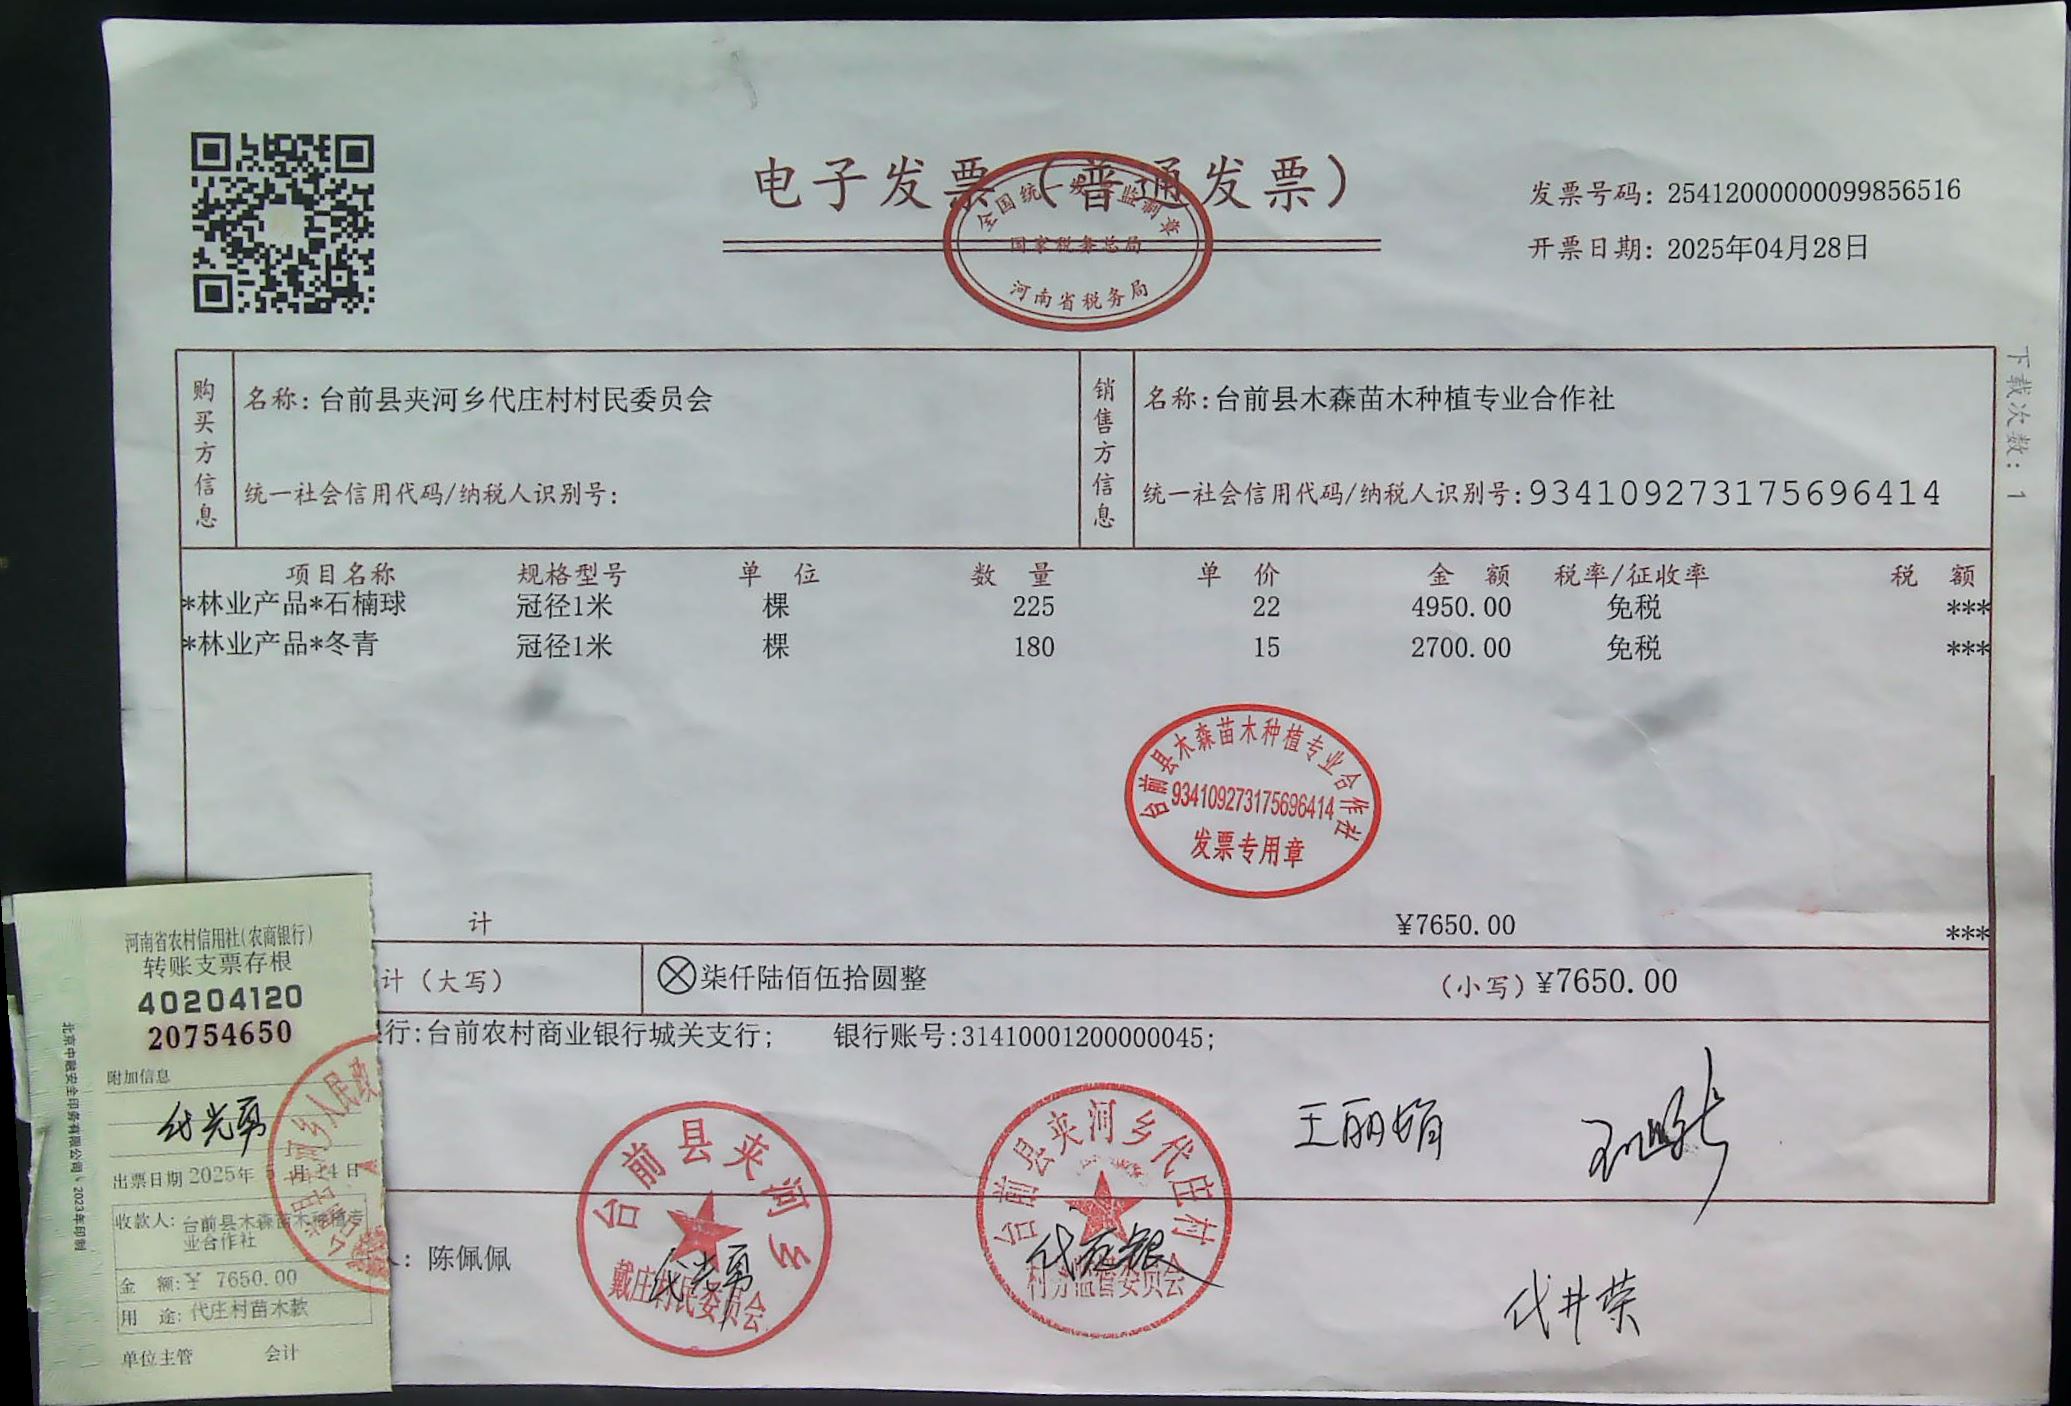 电子发票（普通发票）
全国统一发票监制章
国家税务总局
河南省税务局
发票号码：25412000000099856516
开票日期：2025年04月28日
下载次数：1
购买方信息
名称：台前县夹河乡代庄村村民委员会
统一社会信用代码/纳税人识别号：
销售方信息
名称：台前县木森苗木种植专业合作社
统一社会信用代码/纳税人识别号：934109273175696414
项目名称 规格型号 单位 数量 单价 金额 税率/征收率 税额
*林业产品*石楠球 冠径1米 棵 225 22 4950.00 免税 ***
*林业产品*冬青 冠径1米 棵 180 15 2700.00 免税 ***
台前县木森苗木种植专业合作社
934109273175696414
发票专用章
计 ¥7650.00 ***
计（大写） ⊗柒仟陆佰伍拾圆整 （小写）¥7650.00
行:台前农村商业银行城关支行； 银行账号:31410001200000045；
王丽娟
台前县夹河乡
戴庄村民委员会
代光勇
台前县夹河乡代庄村
村务监督委员会
代井荣
：陈佩佩
河南省农村信用社（农商银行）
转账支票存根
40204120
20754650
附加信息
代光勇
出票日期 2025年 5月14日
收款人：台前县木森苗木种植专
业合作社
金额：¥ 7650.00
用途：代庄村苗木款
单位主管 会计
北京中融安全印务有限公司 2023年印制